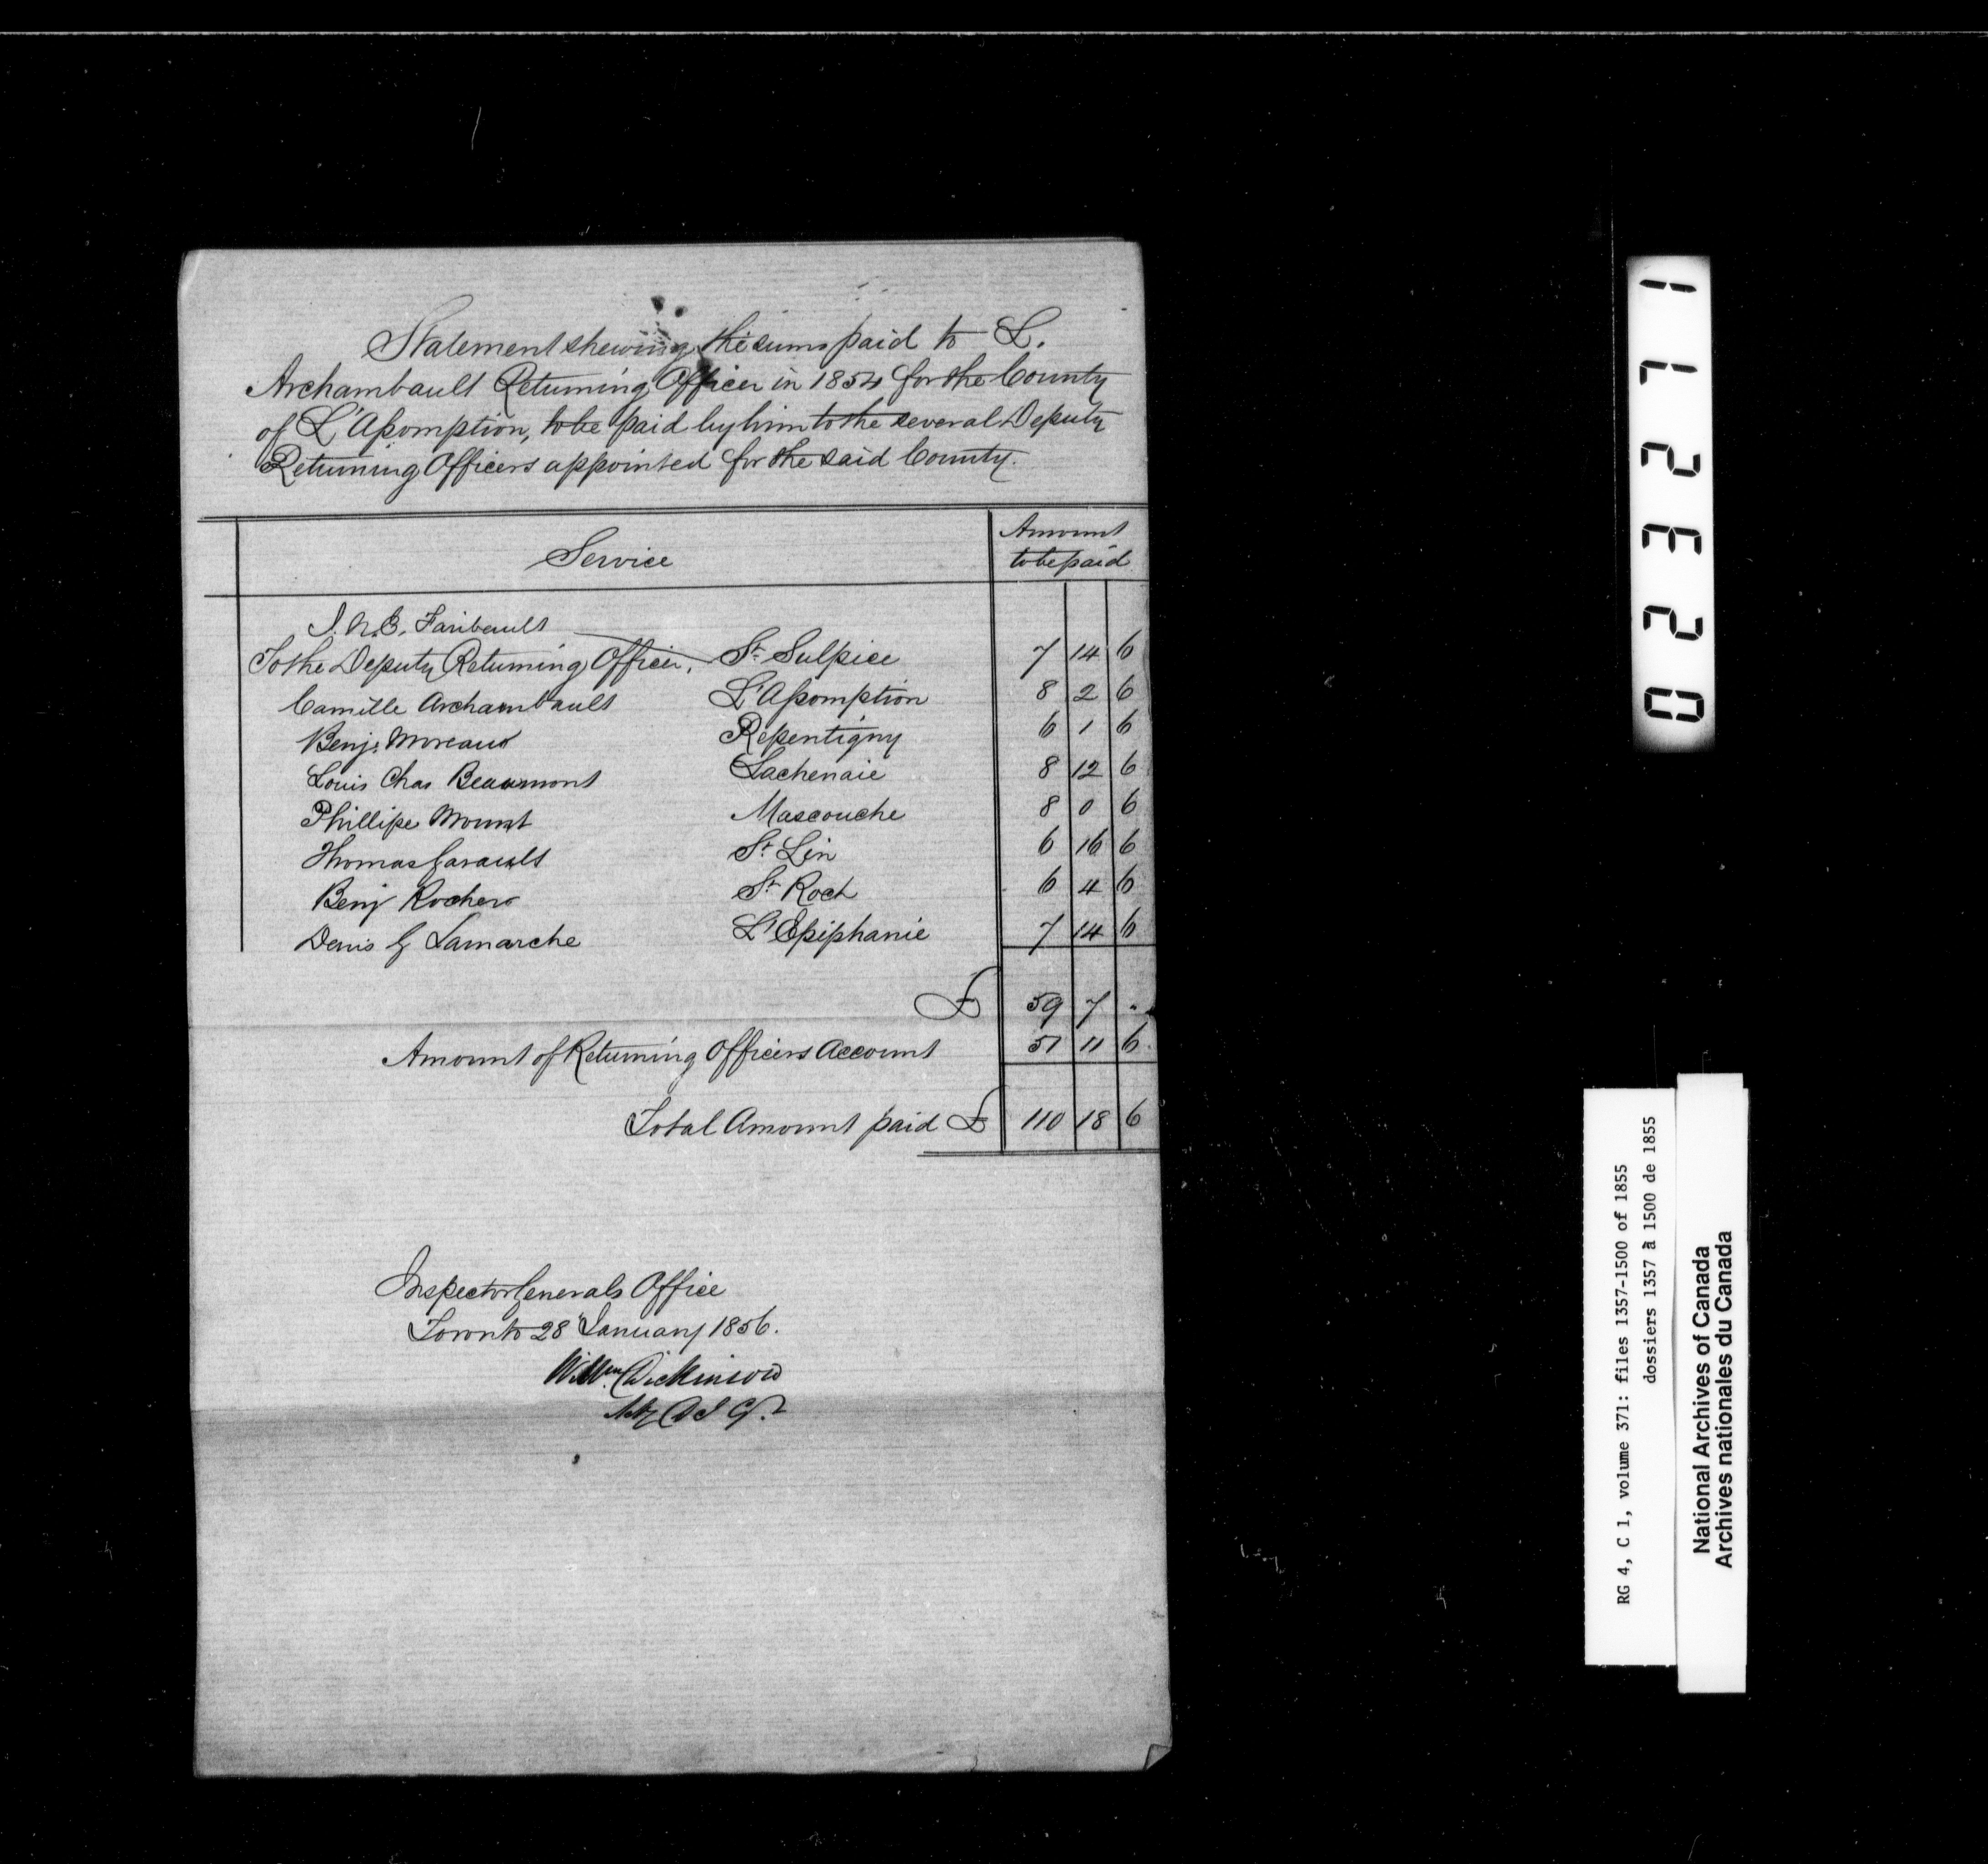 Statement shewing the sums paid to L.
Archambault Returning Officer in 1854 for the County
of L'Assomption, to be paid by him to the several Deputy
Returning Officers appointed for the said County.
Service
Amount
to be paid
J. N. E. Faribault
To the Deputy Returning Officer, St Sulpice 7 14 6
Camille Archambault L'Assomption 8 2 6
Benj. Moreau Repentigny 6 1 6
Louis Chas Beaumont Lachenaie 8 12 6
Phillipe Mount Mascouche 8 0 6
Thomas Garault St Lin 6 16 6
Benj Rocher St Roch 6 4 6
Denis G Lamarche L'Epiphanie 7 14 6
£ 59 7 -
Amount of Returning Officers Account 51 11 6
Total Amount paid £ 110 18 6
Inspector Generals Office
Toronto 28 January 1856.
Willm. Dickinson
Actg D I Gl.
023271
RG 4, C 1, volume 371: files 1357-1500 of 1855
dossiers 1357 à 1500 de 1855
National Archives of Canada
Archives nationales du Canada